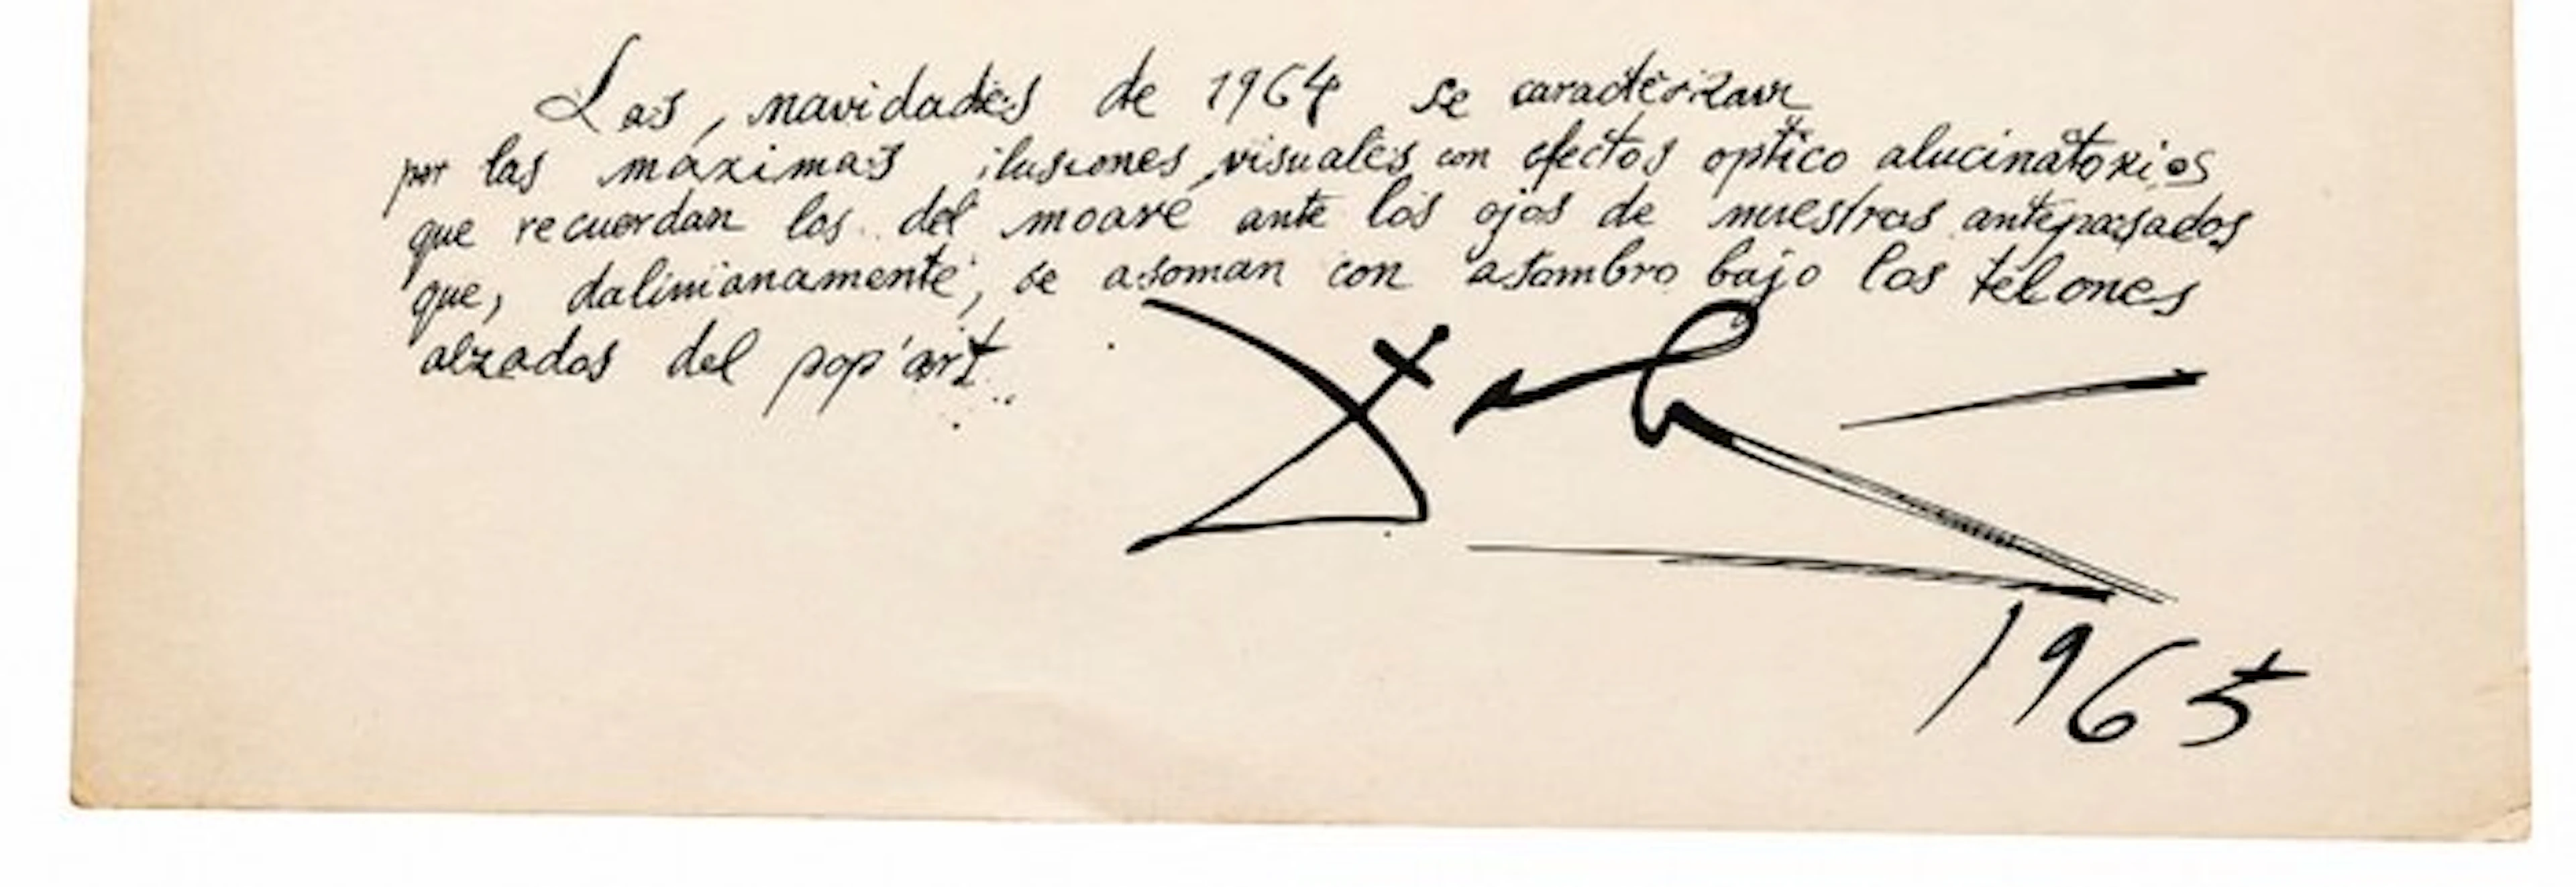 Las navidades de 1964 se caracterizan
por las máximas ilusiones visuales con efectos optico alucinatorios
que recuerdan los del moaré ante los ojos de nuestros antepasados
que, dalinianamente, se asoman con asombro bajo los telones
alzados del pop'art
Dalí
1965